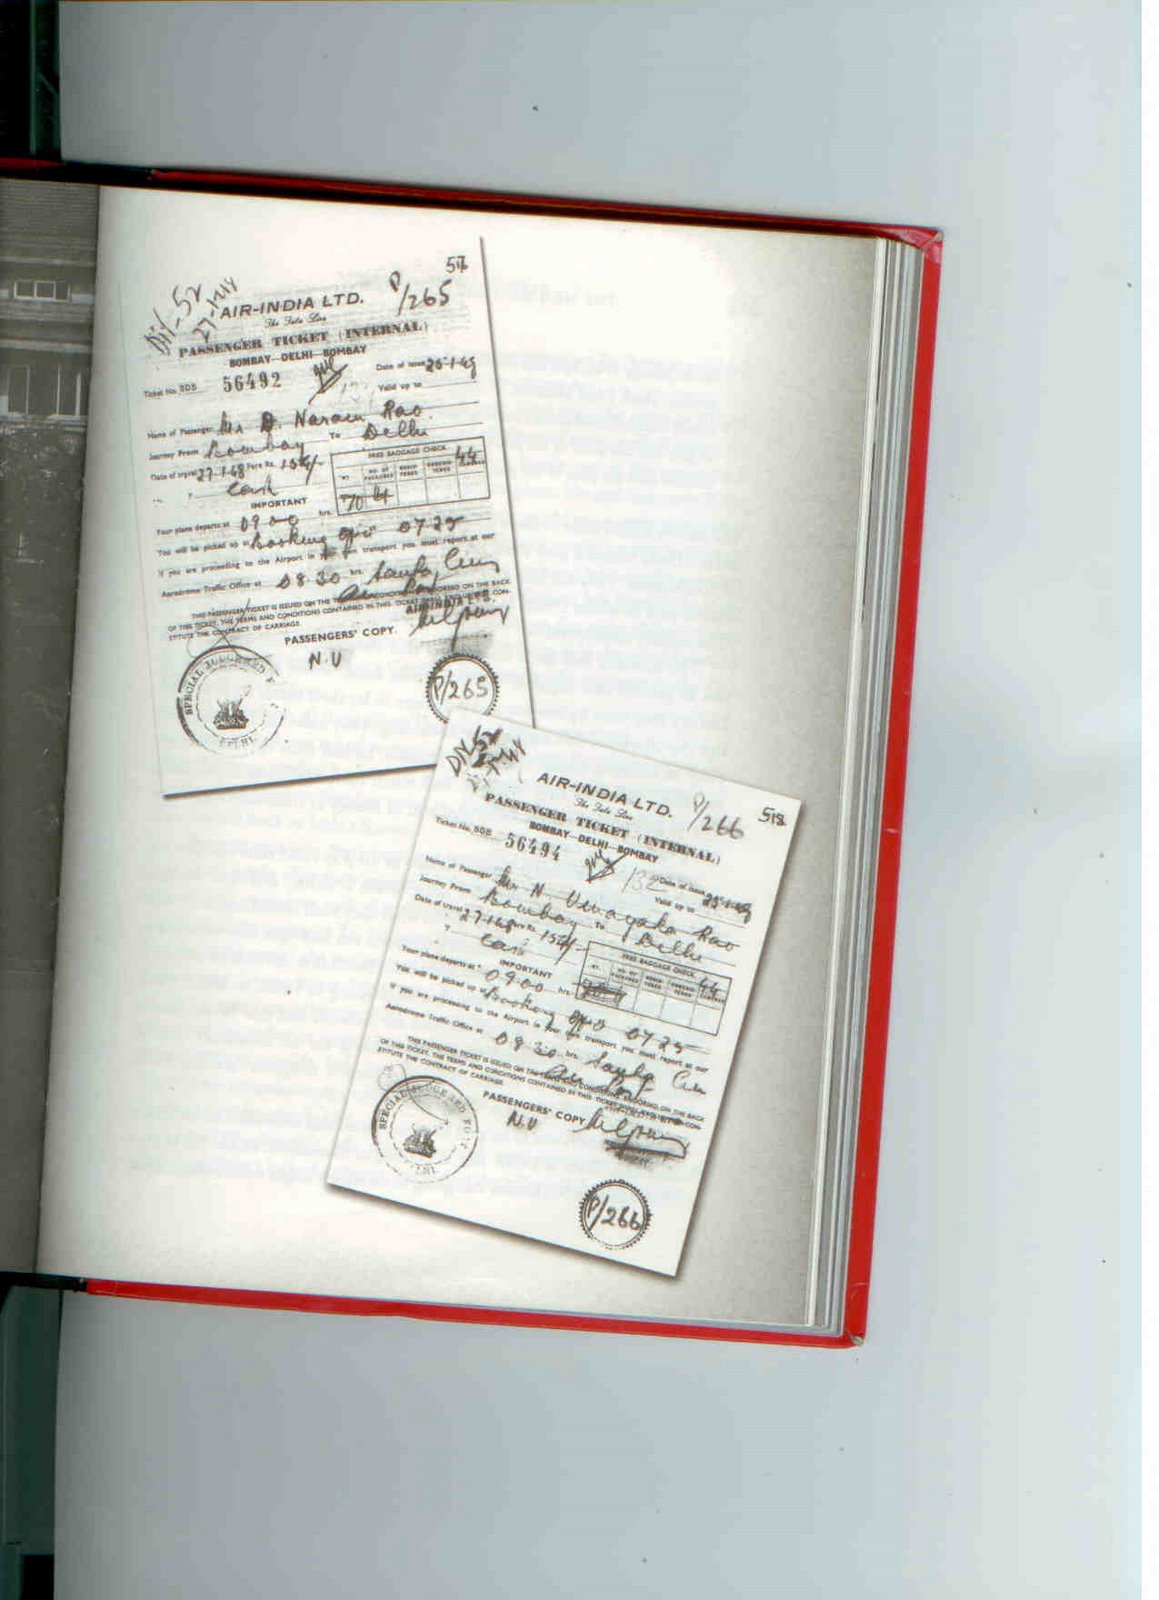 57
DN-52
27-1-48
P/265
AIR-INDIA LTD.
PASSENGER TICKET (INTERNAL)
BOMBAY—DELHI—BOMBAY
Date of issue 25-1-48
Ticket No. BDB 56492
Valid up to
Name of Passenger Mr D. Narain Rao
Journey From Bombay To Delhi
Date of travel 27-1-48 Fare Rs. 154/-
Cash
FREE BAGGAGE CHECK 44
WT. NO. OF PACKAGES
IMPORTANT
Your plane departs at 09 00 hrs.
You will be picked up at Booking office at 07 25
If you are proceeding to the Airport in your own transport you must report at our
Aerodrome Traffic Office at 08 30 hrs. Santa Cruz
Air Port
THIS PASSENGER TICKET IS ISSUED ON THE CONDITIONS ON THE BACK
OF THIS TICKET. THE TERMS AND CONDITIONS CONTAINED IN THIS TICKET CON-
STITUTE THE CONTRACT OF CARRIAGE.
AIR-INDIA LTD.
PASSENGERS' COPY.
N.U
SPECIAL JUDGE RED F
DELHI
P/265
DN 52
AIR-INDIA LTD.
P/266
PASSENGER TICKET (INTERNAL)
BOMBAY—DELHI—BOMBAY
Ticket No. BDB 56494
132
Date of issue 25-1-48
Valid up to
Name of Passenger Mr N. Vinayaka Rao
Journey From Bombay To Delhi
Date of travel 27-1-48 Fare Rs. 154/-
Cash
FREE BAGGAGE CHECK 44
WT. NO. OF PACKAGES
IMPORTANT
Your plane departs at 09 00 hrs.
You will be picked up at Booking office 07 25
If you are proceeding to the Airport in your own transport you must report at our
Aerodrome Traffic Office at 08 30 hrs. Santa Cruz
Air Port
THIS PASSENGER TICKET IS ISSUED ON THE CONDITIONS ON THE BACK
OF THIS TICKET. THE TERMS AND CONDITIONS CONTAINED IN THIS TICKET CON-
STITUTE THE CONTRACT OF CARRIAGE.
PASSENGERS' COPY
N.U
SPECIAL JUDGE RED FORT
P/266